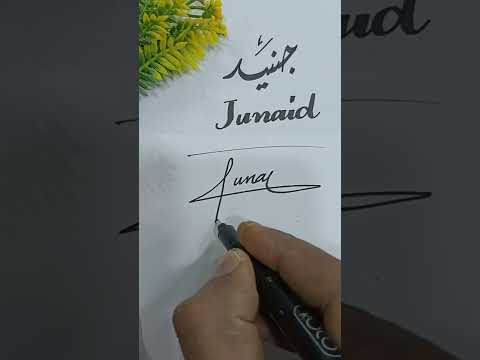 جنید
Junaid
Juna